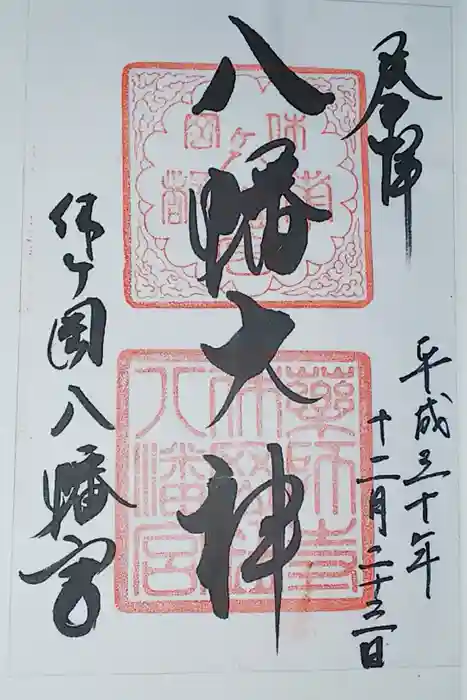 奉拝
平成三十年
十二月二十三日
八幡大神
休ヶ岡八幡宮
藥師寺
八幡宮